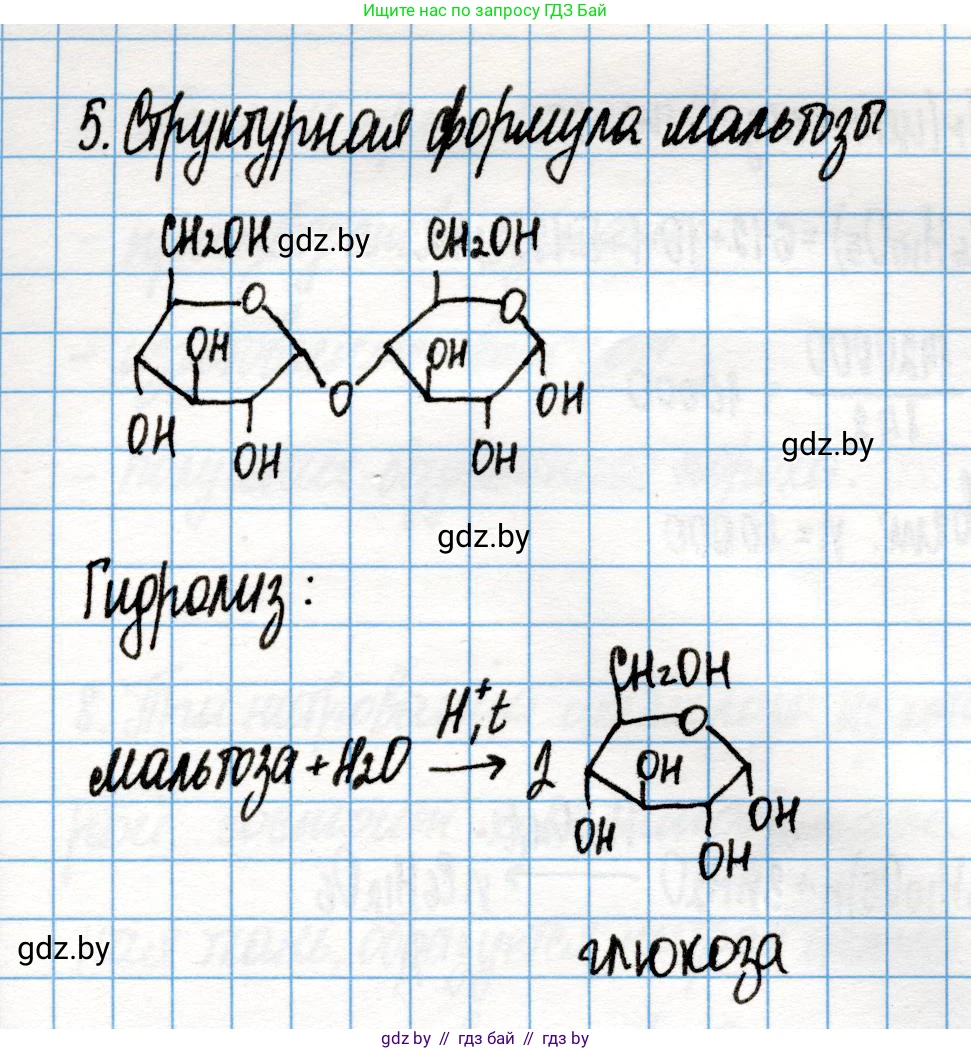 Ищите нас по запросу ГДЗ Бай
5. Структурная формула мальтозы
CH2OH gdz.by CH2OH
O O
OH OH
O OH
OH OH OH
gdz.by
gdz.by
Гидролиз:
CH2OH
H+, t O
мальтоза + H2O → 2 OH
OH OH OH
gdz.by
глюкоза
gdz.by // гдз бай // gdz.by